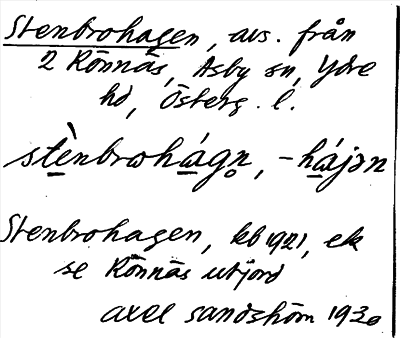 Stenbrohagen, avs. från
2 Rönnäs, Asby sn, Ydre
hd, Österg. l.
stὲnbrωhágn̥, -hájən
Stenbrohagen, kb 1921, ek
se Rönnäs utjord
axel sandström 1930